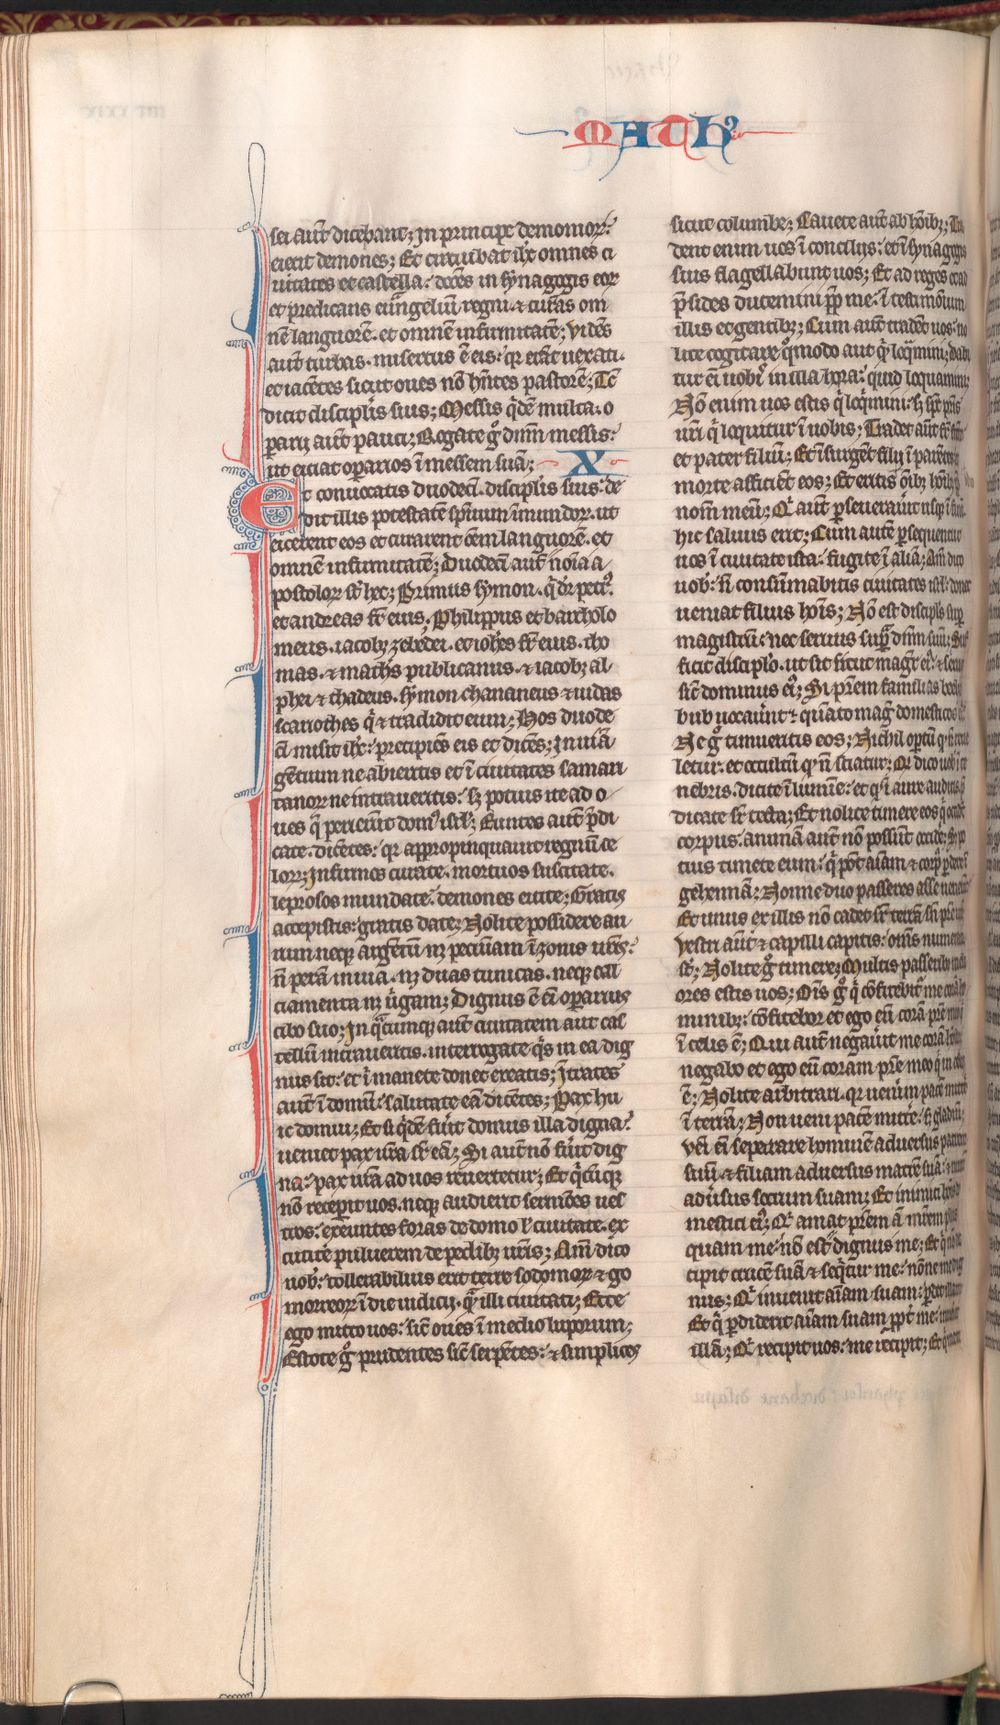 MATH
sei aut̄ dicebant; In principe demonior̄
eiecit demones; Et circuibat ih̄c omnes ci
uitates et castella. docēs in synagogis eor̄
et predicans euāngeliū regni. ⁊ curās om
nē languorē. et omnē infirmitatē; Vidēs
aut̄ turbas. misertus ē eis. qr̄ erāt uexati.
et iacētes sicut oues nō hn̄tes pastorē; Tc̄
dicit discipl̄is suis; Messis q̄dē multa. o
perarij aut̄ pauci; Rogate g̊ dn̄m messis.
ut eiciat op̄arios ī messem suā; X
Et conuocatis duodecī. discipl̄is suis. de
dit illis potestatē spirituum īmundor̄. ut
eicerent eos et curarent ōem languorē. et
omnē infirmitatē; Duodecī aut̄ noīa a
postolor̄ s̄t hec; Primus symon. q̄ dr̄ petr᷒.
et andreas fr̄ eius. Philippus et bartholo
meus. iacob᷒ zebedei. et ioh̄es fr̄ eius. tho
mas. ⁊ math̄s publicanus. ⁊ iacob᷒ al
phei ⁊ thadeus. symon chananeus ⁊ iudas
scariothes q̄ ⁊ tradidit eum; Hos duode
cī misit ih̄c. precipiēs eis et dicēs; In uiā
gētium ne abieritis et ī ciuitates samari
tanor̄ ne intraueritis. sꝫ potius ite ad o
ues q̄ perierūt dom᷒ isrl̄; Euntes aut̄ p̄di
cate. dicētes. qr̄ appropinquauit regnū ce
lor̄; Infirmos curate. mortuos suscitate.
leprosos mundate. demones eicite; Gratis
accepistis. gratis date; Nolite possidere au
rum neqꝫ argētū nꝫ pecuniam ī zonis ur̄is.
n̄ perā in uia. nꝫ duas tunicas. neqꝫ cal
ciamenta nꝫ uirgam; Dignus ē eī operarius
cibo suo; In q̄cumqꝫ aut̄ ciuitatem aut cas
tellū intraueritis. interrogate q̄s in ea dig
nus sit. et ī manete donec exeatis; Ītrātes
aut̄ ī domū. salutate eā dicētes; Pax hu
ic domui; Et si q̄dē fūit domus illa digna.
ueniet pax ur̄a sr̄ eā; Si aut̄ nō fūit dig
na. pax ur̄a ad uos reuertetur; Et q̄cūqꝫ
nō receperit uos. neqꝫ audierit sermōes ues
tros. exeuntes foras de domo ł ciuitate. ex
cutite puluerem de pedibꝫ ur̄is; Am̄ dico
uob᷒. tollerabilius erit terre sodomor̄ ⁊ go
morreor̄ ī die iudicij. q̄ illi ciuitati; Ecce
ego mitto uos. sic̄ oues ī medio luporum;
Estote g̊ prudentes sic̄ serpētes. ⁊ simplices
sicut columbe; Cauete aut̄ ab hōibꝫ; Tra
dent enim uos ī concilijs. et ī synagogis
suis flagellabunt uos; Et ad reges et ad
p̄sides ducemini p̄p me. ī testimōium
illis et gentibꝫ; Cum aut̄ tradēt uos. no
lite cogitare q̊modo aut q̄ loq̄mini; Dabi
tur eī uobis in illa hora. quid loquamini;
Nō enim uos estis q̄ loq̄mini. sꝫ sp̄c p̄ris
ur̄i q̄ loquitur ī uobis; Tradet aut̄ fr̄ fr̄em
et pater filiū; Et īsurgēt filij ī parētes
morte afficiēt eos; Et eritis ōibꝫ
nom̄ meū; Q̄ aut̄ p̄seuerauīt usqꝫ ī
hic saluus erit; Cum autē p̄sequentur
uos ī ciuitate ista. fugite ī aliā; Am̄ dico
uob᷒. n̄ consūmabitis ciuitates isrl̄. donec
ueniat filius hoīs; Nō est discipl̄s sup̄
magistrū. nec seruus sup̄ dn̄m suū; Suf
ficit discipl̄o. ut sit sicut magr̄ ei᷒. ⁊ seruus
sic̄ dominus ei᷒; Si pr̄em familias beelze
bub uocauer̄nt. quāto mag̊ domesticos
Ne g̊ timueritis eos; Nichil op̄tū q̄ n̄ reue
letur. et occultū q̄ n̄ sciatur; Q̄ dico uob᷒ ī te
nebris. dicite ī lumīe. et q̄ ī aure auditis p̄
dicate sr̄ tecta; Et nolite timere eos q̄ occidūt
corpus. animā aut̄ nō possūt occide; Sꝫ po
tius timete eum. q̄ pōt aīam ⁊ corp᷒ p̄dere ī
gehennā; Nonne duo passeres asse ueneūt
Et unus ex illis nō cadet sr̄ terrā sn̄ pr̄e
Vestri aut̄ ⁊ capilli capitis. oms̄ numerati
st̄; Nolite g̊ timere; Multis passeribꝫ meli
ores estis uos; Oīs g̊ q̄ cōfitebit᷒ me corā ho
minibꝫ. cōfitebor et ego eū corā pr̄e meo
ī celis ē; Qui aut̄ negauīt me corā
negabo et ego eū coram pr̄e meo q̄ in celis
ē; Nolite arbitrari. qr̄ uenim pacē mitte
ī terrā; Non ueni pacē mitte. sꝫ gladiū;
Veī eī separare hominē aduersus patrem
suū ⁊ filiam aduersus matrē suā. ⁊
adūsus socrum suam; Et inimici hoīs do
mestici ei᷒; Q̄ amat pr̄em aū mr̄em plus
quam me. nō est dignus me; Et q̄ nō ac
cipit crucē suā ⁊ seq̄tur me. nō ē me dig
nus; Q̄ inuenit aīam suam. p̄det illam
Et q̄ p̄diderit aīam suam pp̄t me. inueniet
illā; Q̄ recipit uos. me recipit; Et q̄